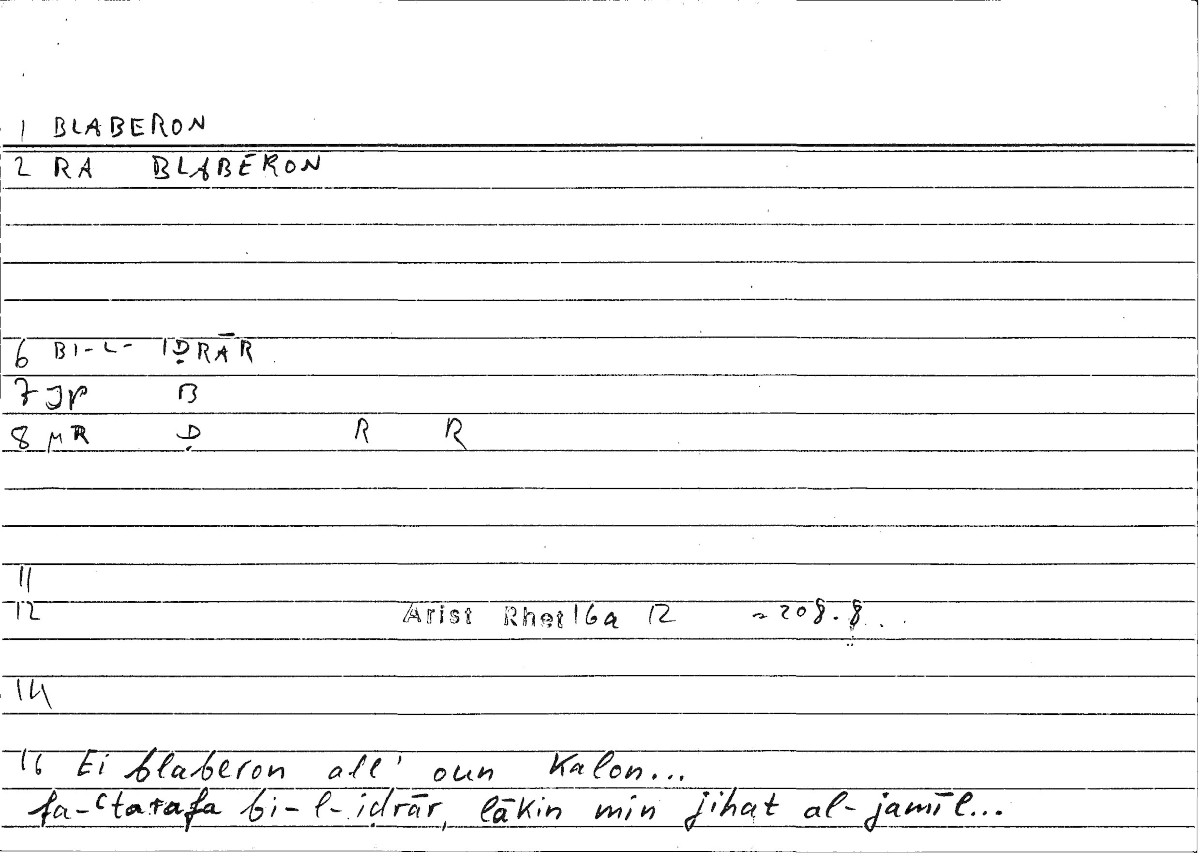 1 BLABERON
2 RA BLABERON
6 BI-L- IḌRĀR
7 JP B
8 MR Ḍ R R
11
12 Arist Rhet 16a 12 ~ 208.8
14
16 Ei blaberon all' oun Kalon...
fa-ʿtarafa bi-l-iḍrār, lākin min jihat al-jamīl...